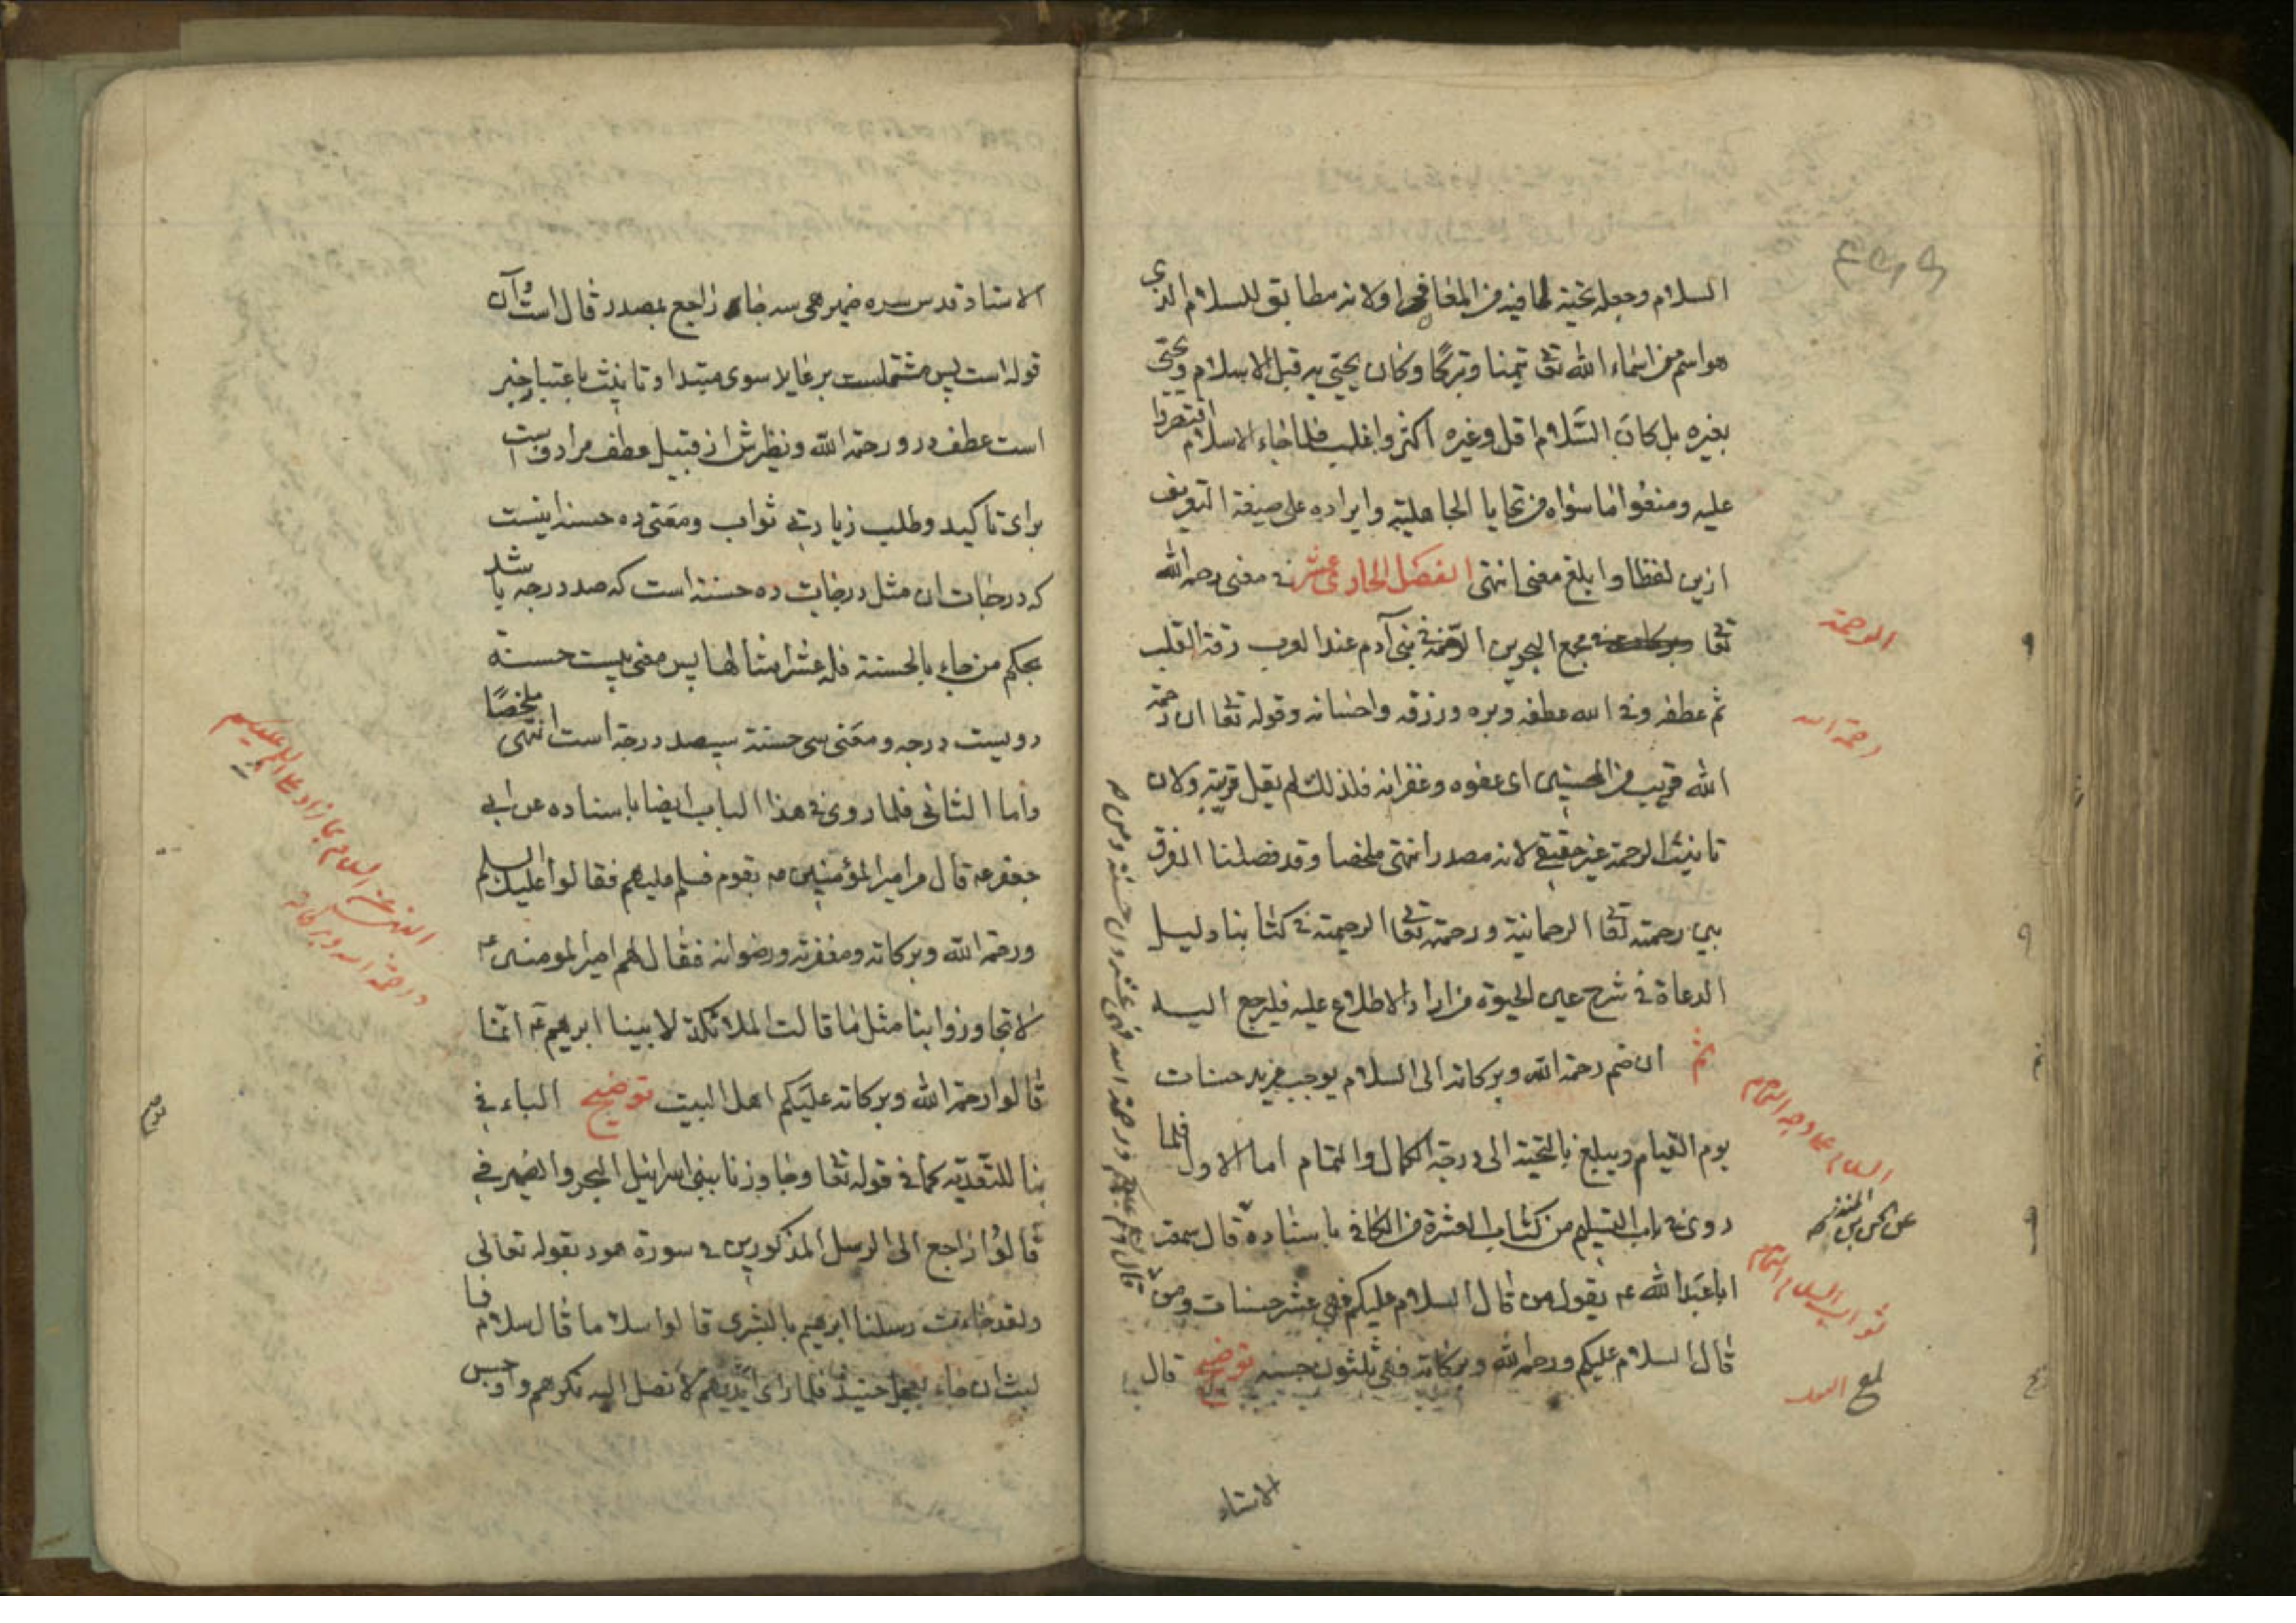 السلام وجعله تحية لما فيه من المعافى او لانه مطابق للسلام الذي
هو اسم من اسماء الله تعا تيمنا وتبركا وكان يحيى به قبل الاسلام ويحيى
بغيره بل كان السلام اقل وغيره اكثر واغلب فلما جاء الاسلام اقتصروا
عليه ومنعوا ما سواه من تحايا الجاهلية وايراده على صيغة التعريف
ازين لفظا وابلغ معنى انتهى الفصل الحادي عشر في معنى رحمة الله
تعا مجمع البحرين الرحمة في بني آدم عند العرب رقة القلب
ثم عطفه وفي الله عطفه وبره ورزقه واحسانه وقوله تعا ان رحمة
الله قريب من المحسنين اى عفوه وغفرانه فلذلك لم يقل قريبة ولان
تانيث الرحمة غير حقيقي لانه مصدر انتهى ملخصا وقد فصلنا الفرق
بين رحمته تعا الرحمانية ورحمته تعا الرحيمية في كتابنا دليل
الدعاة في شرح عين الحيوة من اراد الاطلاع عليه فليرجع اليه
ثم ان ضم رحمة الله وبركاته الى السلام يوجب مزيد حسنات
يوم القيام ويبلغ بالتحية الى درجة الكمال والتمام اما الاول فلما
روى في باب التسليم من كتاب العشرة من الكافي باسناده قال سمعت
ابا عبد الله عم يقول من قال السلام عليكم فهى عشر حسنات ومن
قال السلام عليكم ورحمة الله وبركاته فهى ثلثون حسنة توضيح قال
الاستاد
الرحمة
رحمة الله
السلام على وجه التمام
عن الحسن بن المنذر
ثواب السلام التمام
قال سلام عليكم ورحمة الله فهى عشرون حسنة ومن
الاستاد قدس سره ضمير هى سه جا راجع بمصدر قال است وآن
قوله است پس مشتملست بر عايد سوى مبتدا وتانيث باعتبار خبر
است عطف در ورحمة الله ونظيرش از قبيل عطف مرادف است
براى تاكيد وطلب زيادتى ثواب ومعنى ده حسنه اينست
كه درجات ان مثل درجات ده حسنه است كه صد درجه باشد
بحكم من جاء بالحسنة فله عشر امثالها پس معنى بيست حسنة
دويست درجه ومعنى سى حسنة سيصد درجة است انتهى ملخصًا
واما الثانى فلما روى في هذا الباب ايضا باسناده عن ابى
جعفر عم قال مر امير المؤمنين عم بقوم فسلم عليهم فقالوا عليك السلم
ورحمة الله وبركاته ومغفرته ورضوانه فقال لهم امير المومنين عم
لا تجاوزوا بنا مثل ما قالت الملائكة لابينا ابرهيم عم انما
قالوا رحمة الله وبركاته عليكم اهل البيت توضيح الباء في
بنا للتعدية كما في قوله تعا وجاوزنا ببنى اسرائيل البحر والضمير في
قالوا راجع الى الرسل المذكورين في سورة هود بقوله تعالى
ولقد جاءت رسلنا ابرهيم بالبشرى قالوا سلاما قال سلام فما
لبث ان جاء بعجل حنيذ فلما راى ايديهم لا تصل اليه نكرهم واوجس
النهى عن السلام بما زاد على السلم عليكم
ورحمة الله وبركاته